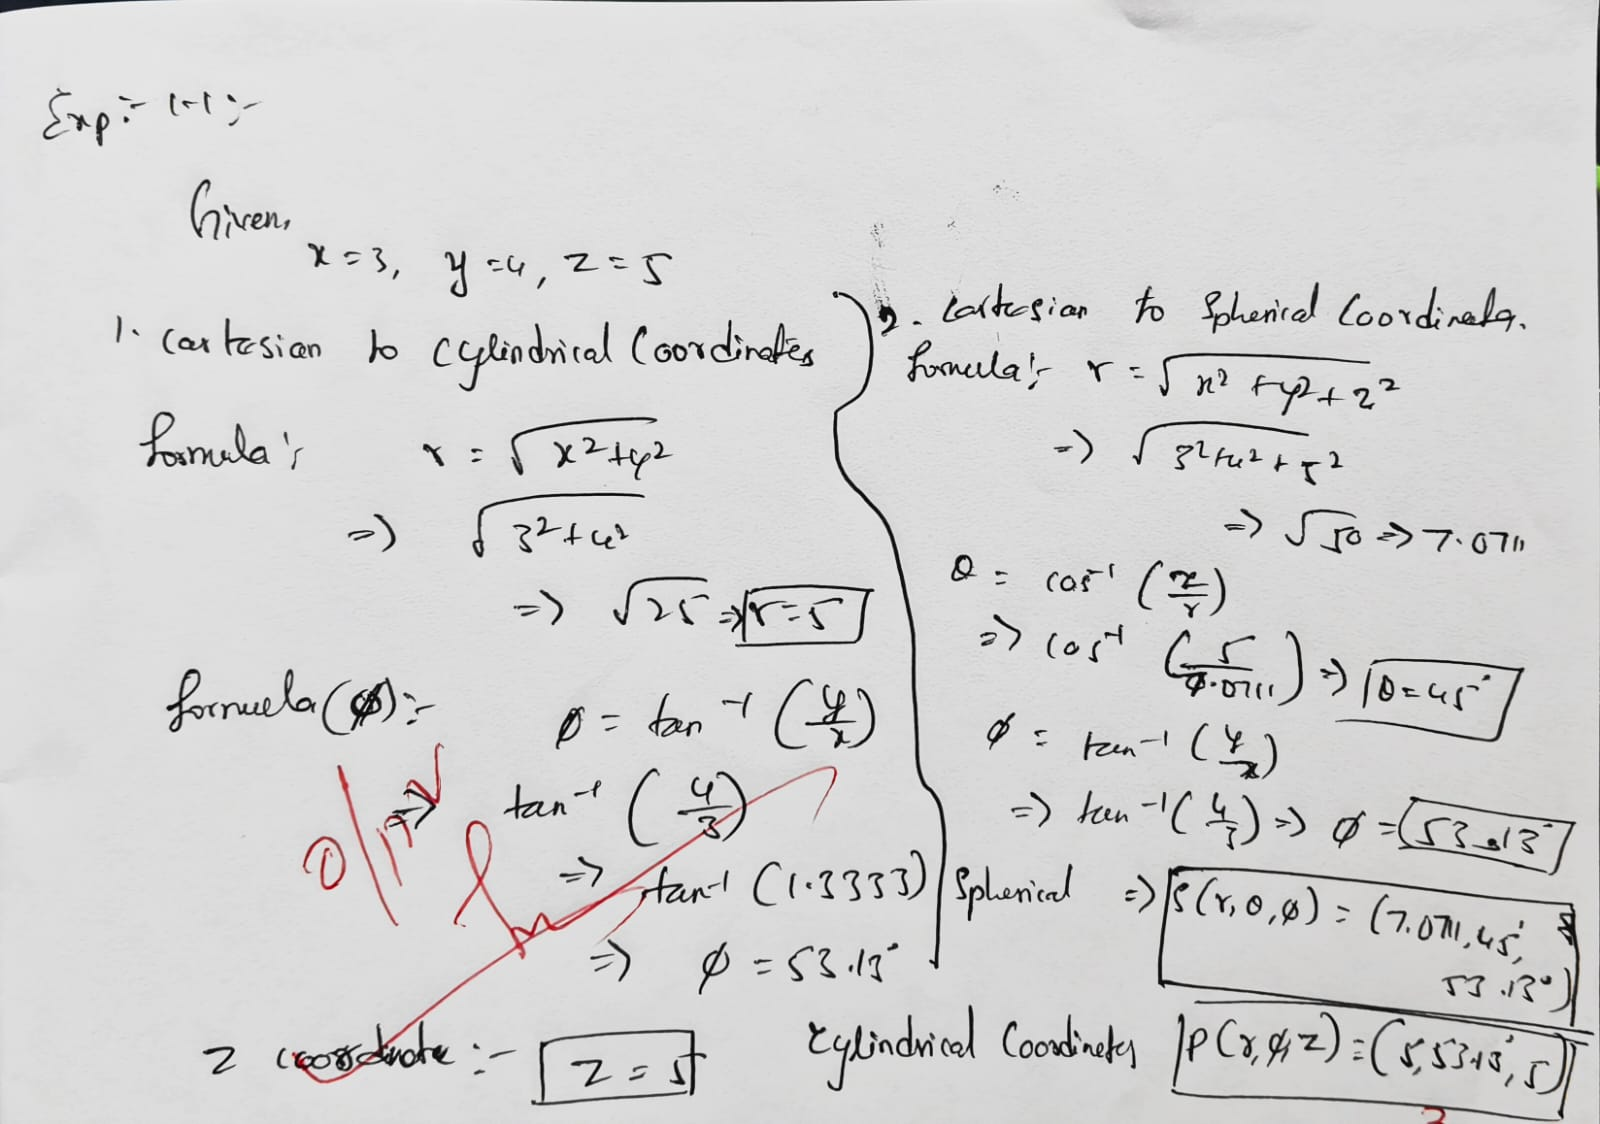 Exp :- 1-1 :-
Given,
x = 3, y = 4, z = 5
1. Cartesian to cylindrical Coordinates
formula :
r = √x²+y²
=> √3²+4²
=> √25 => r = 5
formula (φ) :-
φ = tan⁻¹ (y/x)
=> tan⁻¹ (4/3)
=> tan⁻¹ (1.3333)
=> φ = 53.13°
z coordinate :- z = 5
2. Cartesian to Spherical Coordinates.
formula :- r = √x²+y²+z²
=> √3²+4²+5²
=> √50 => 7.0711
θ = cos⁻¹ (z/r)
=> cos⁻¹ (5/7.0711) => θ = 45°
φ = tan⁻¹ (y/x)
=> tan⁻¹ (4/3) => φ = 53.13°
Spherical => S(r, θ, φ) = (7.0711, 45°,
53.13°)
Cylindrical Coordinates P(r, φ, z) = (5, 53.13°, 5)